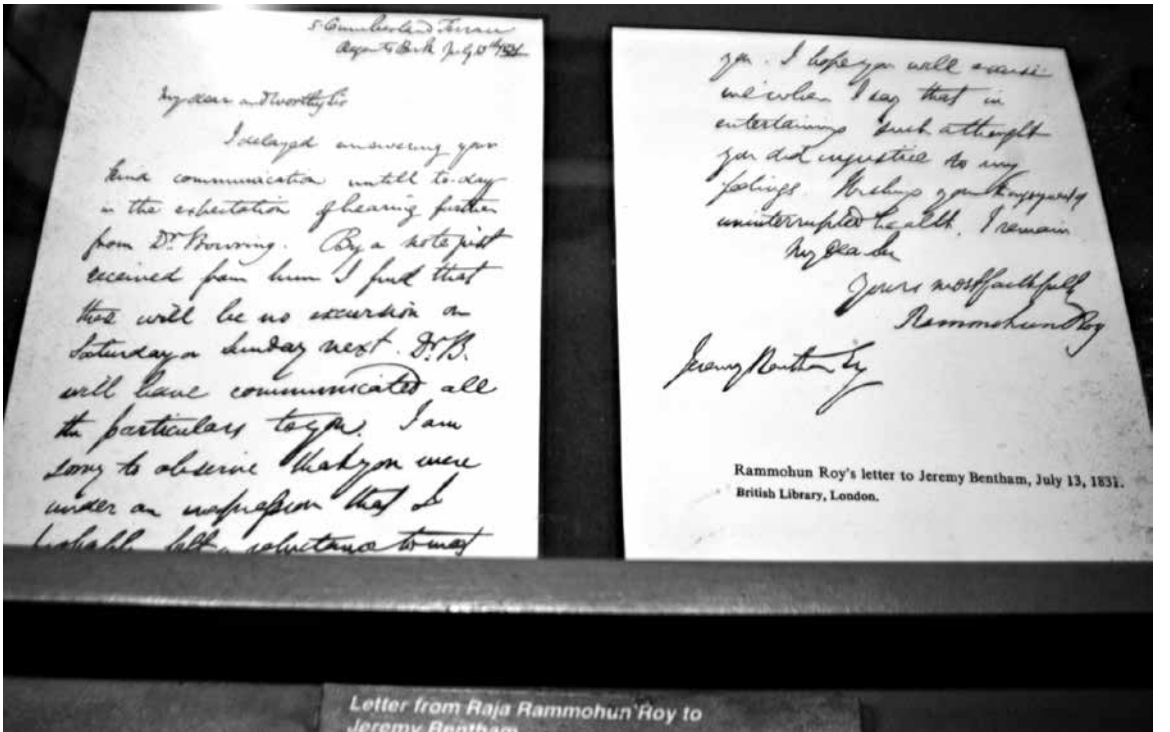 5 Cumberland Terrace
Regents Park July 13th 1831
My dear and Worthy Sir
I delayed answering your
kind communication untill to-day
in the expectation of hearing further
from Dr. Bowring. By a note just
received from him I find that
there will be no excursion on
Saturday or Sunday next. Dr. B.
will have communicated all
the particulars to you. I am
sorry to observe that you were
under an impression that I
probably felt a reluctance to meet
you. I hope you will excuse
me when I say that in
entertaining such a thought
you did injustice to my
feelings. Wishing you enjoyment of
uninterrupted health, I remain
My dear Sir
Yours most faithfully
Rammohun Roy
Jeremy Bentham Esq
Rammohun Roy's letter to Jeremy Bentham, July 13, 1831.
British Library, London.
Letter from Raja Rammohun Roy to
Jeremy Bentham